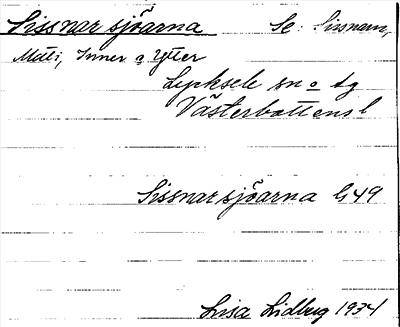 Sissnarsjöarna Se: Sissnaren,
Mitti, Inner o Ytter
Lycksele sn o tg
Västerbottens l
Sissnarsjöarna G49
Lisa Lidberg 1934